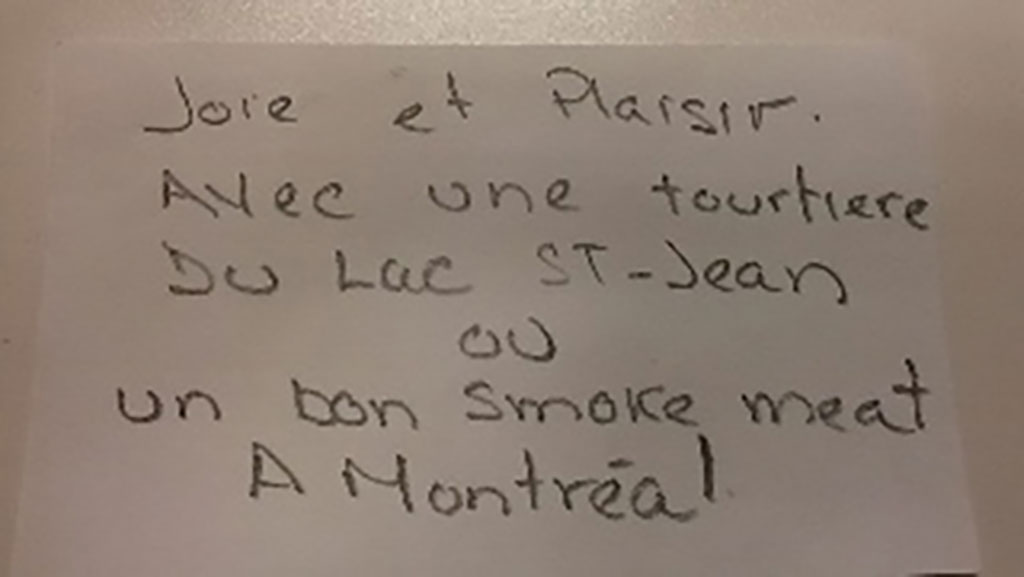 Joie et Plaisir.
Avec une tourtiere
Du Lac ST-Jean
ou
un bon smoke meat
A Montréal.